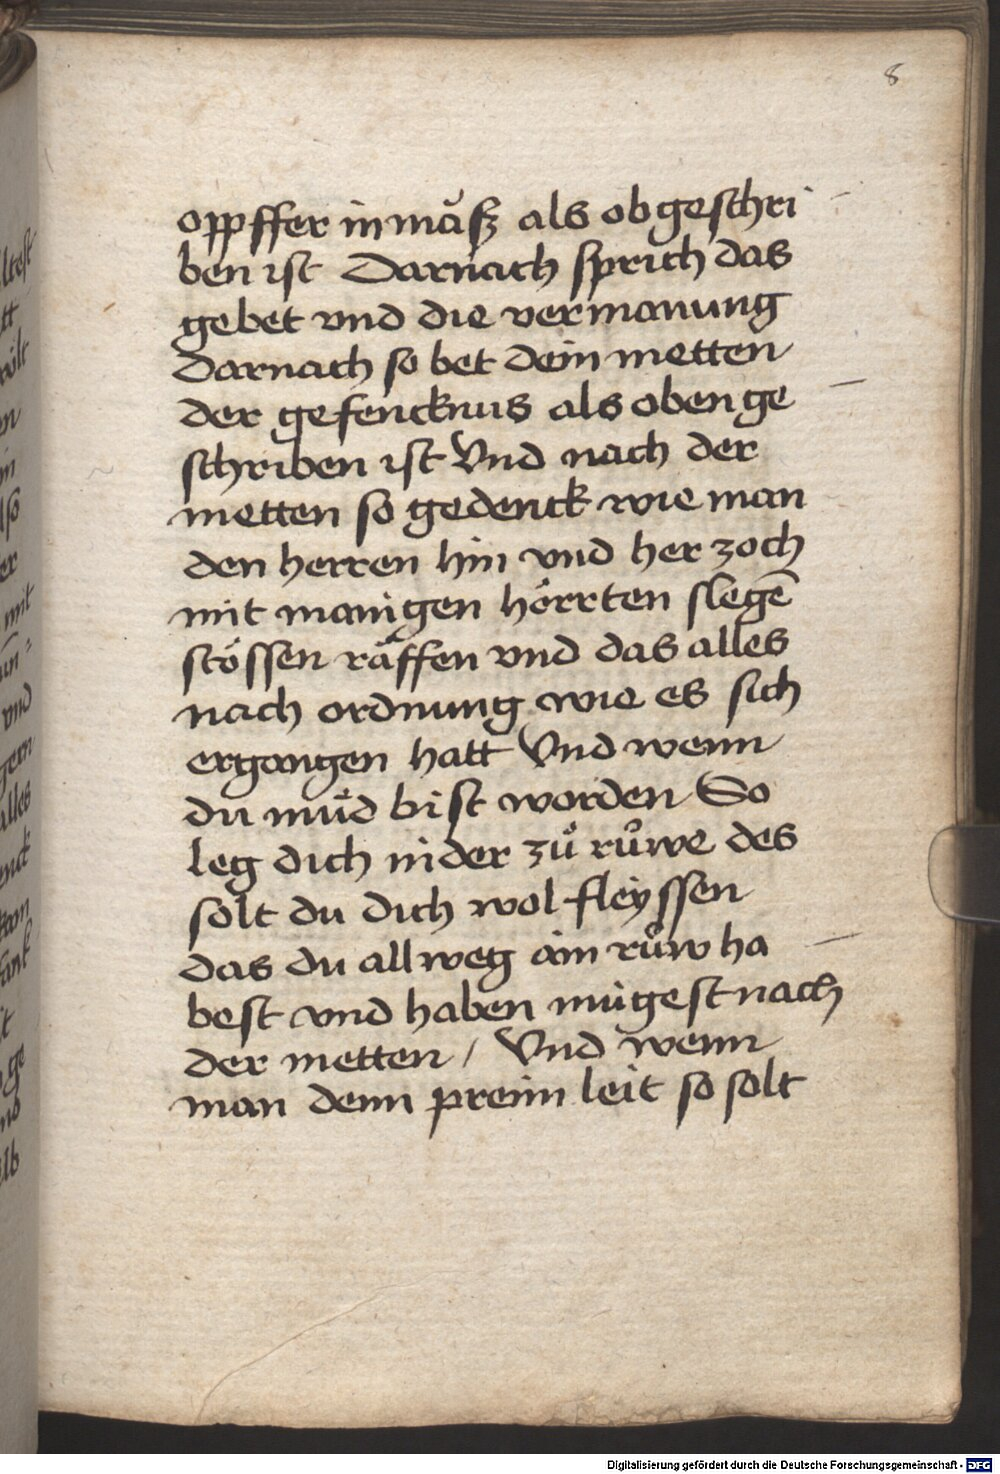 8
oppffer in măß als ob geschri
ben ist Darnach sprich das
gebet vnd die vermanung
Darnach so bet dein metten
der gefencknus als oben ge
schriben ist Vnd nach der
metten so gedenck wie man
den herren hin vnd her zoch
mit manigen hörrten slegē
stössen räffen vnd das alles
nach ordnung wie es sich
ergangen hatt Vnd wenn
du müd bist worden So
leg dich nider zů růwe des
solt du dich wol fleyssen
das du allweg ain růw ha
best vnd haben mügest nach
der metten / Vnd wenn
man denn preim leit so solt
Digitalisierung gefördert durch die Deutsche Forschungsgemeinschaft - DFG